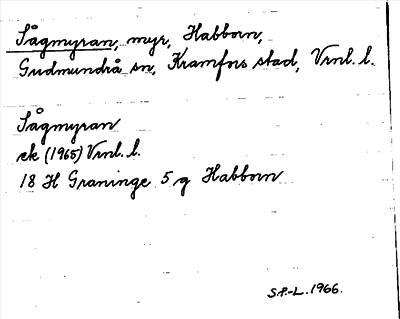 Sågmyran, myr, Habborn,
Gudmundrå sn, Kramfors stad, Vrnl. l.
Sågmyran
ek (1965) Vrnl. l.
18 H Graninge 5 g Habborn
S.P.-L. 1966.